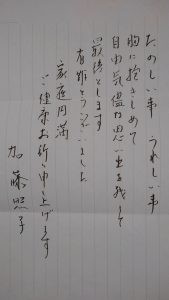 たのしい事 うれしい事
胸に抱きしめて
自由気儘な思い出を残して
最後とします
有難とうございました
家庭円満
ご健康お祈り申し上げます
加藤照子